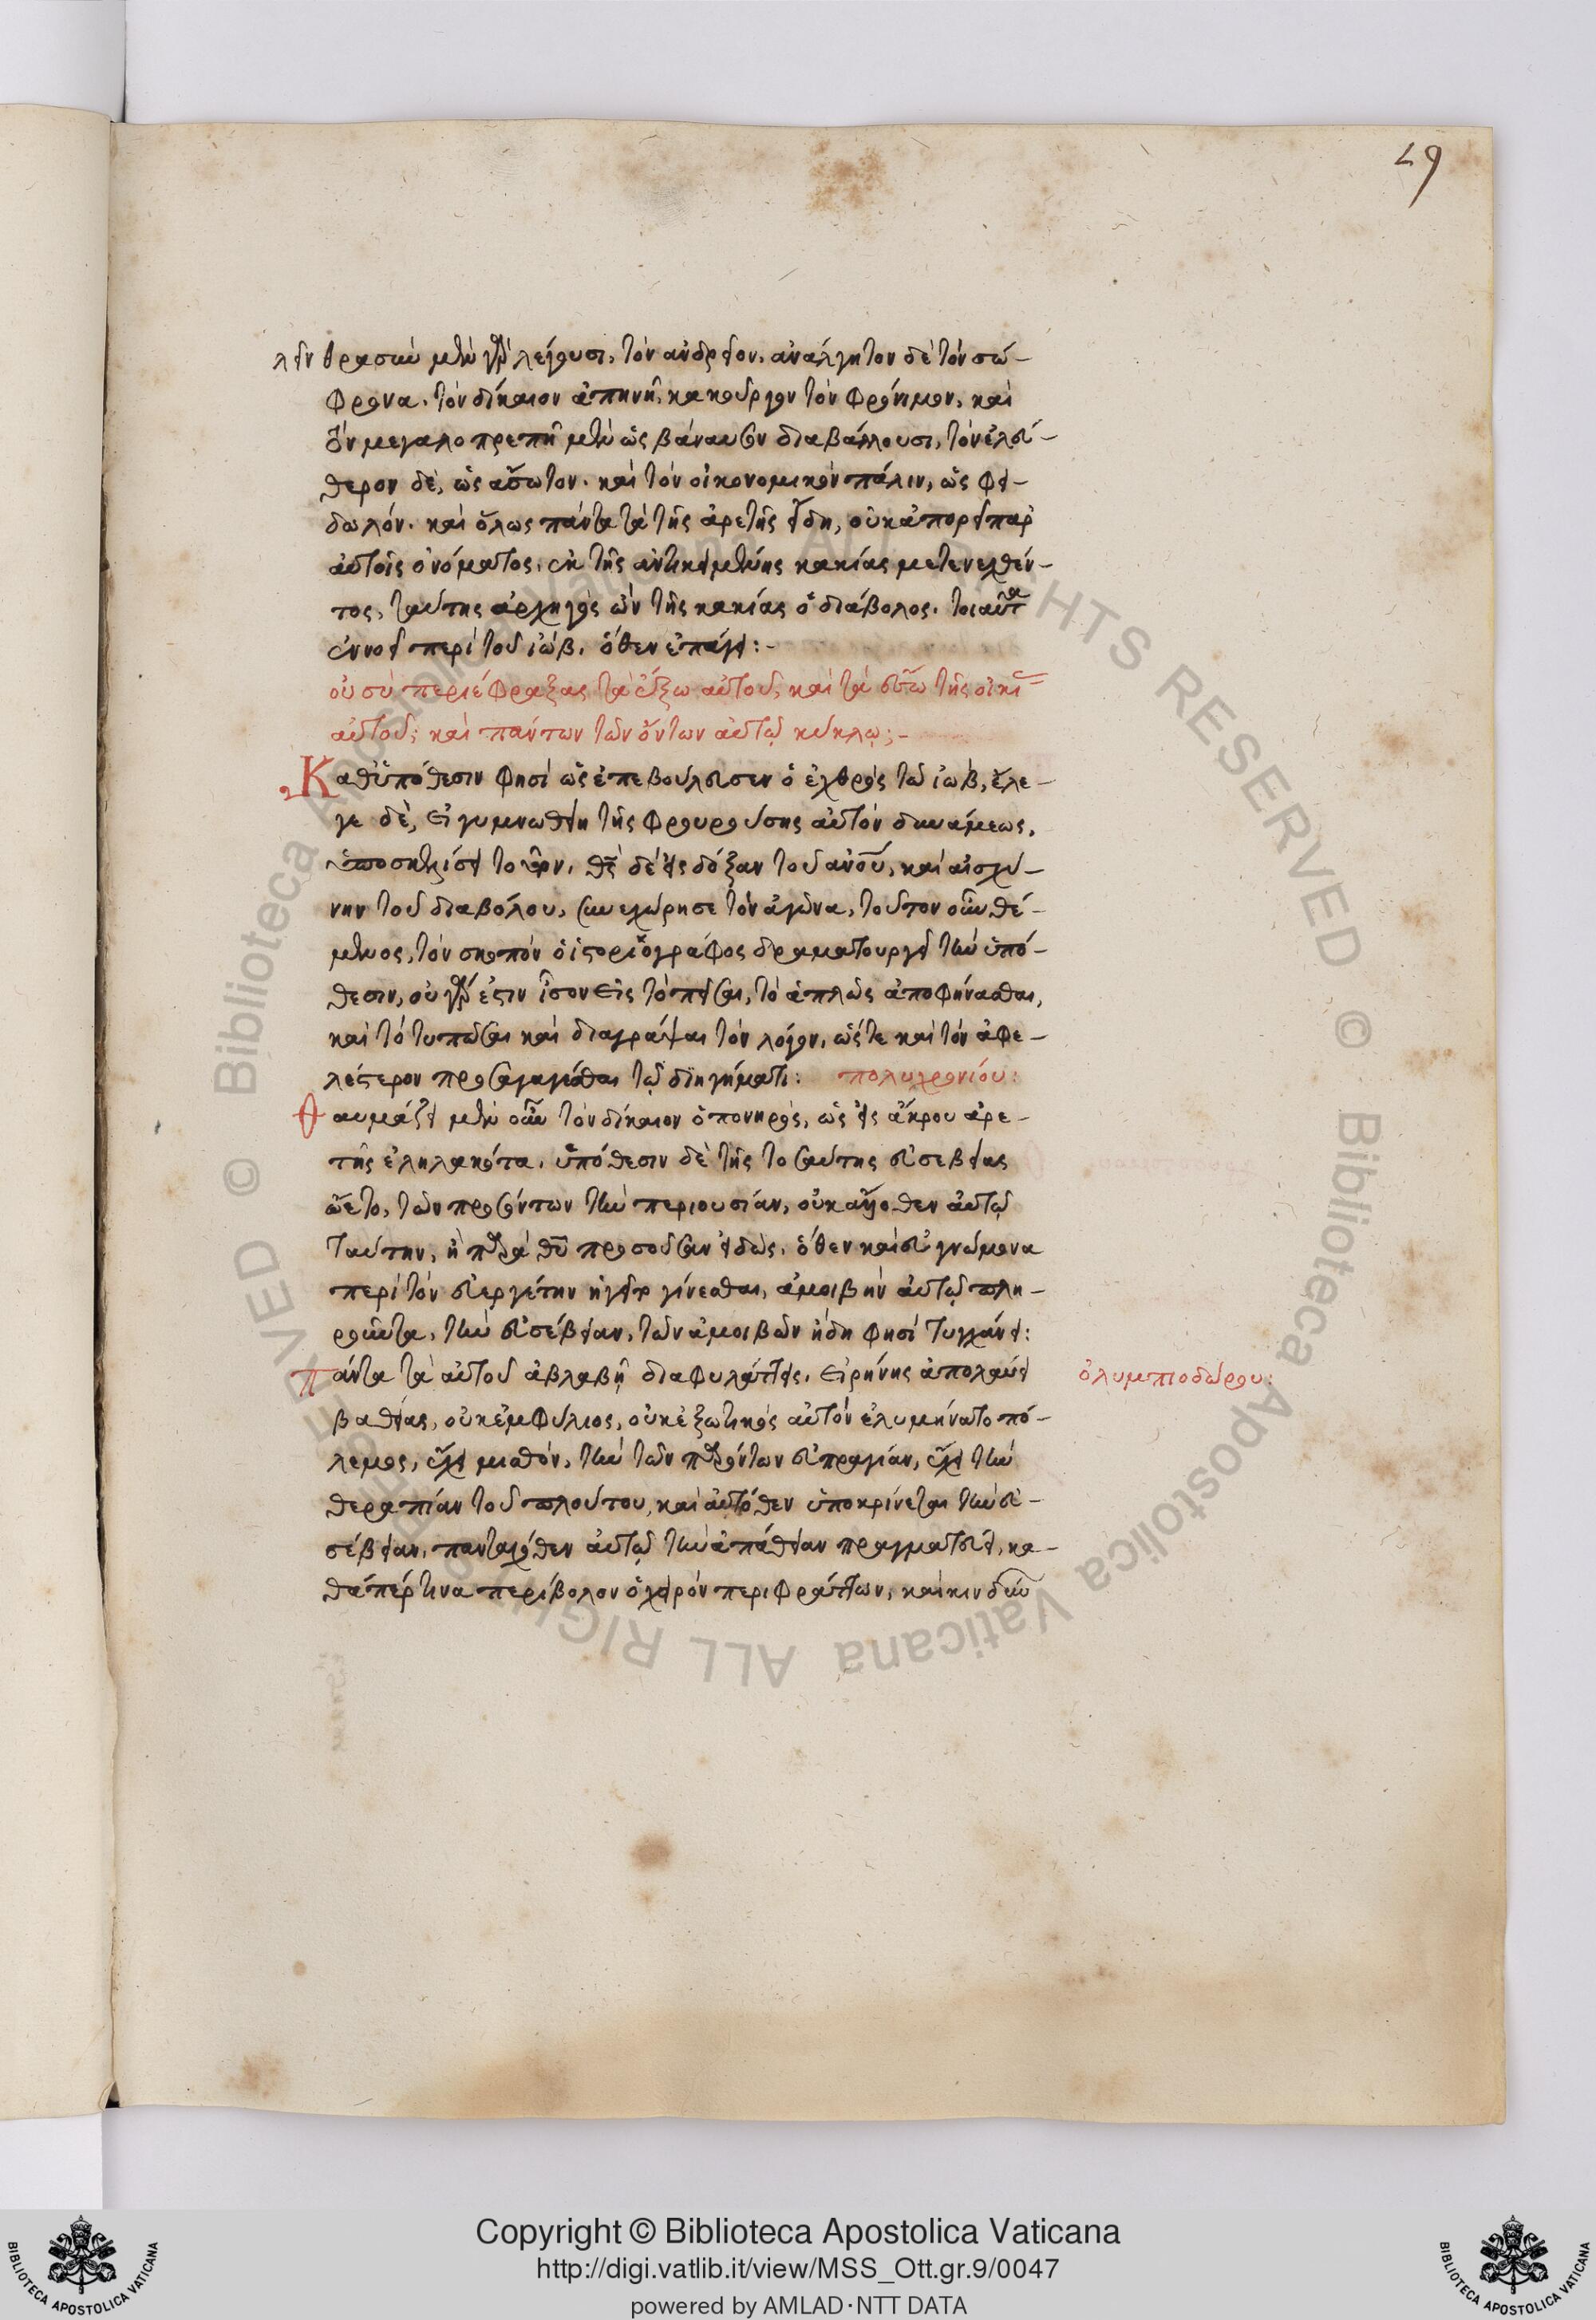 29
λειν θρασὺν μὲν γὰρ λέγουσι, τὸν ἀνδρεῖον. ἀνάλγητον δὲ τὸν σώ-
φρονα. τὸν δίκαιον ἀπηνῆ, κακοῦργον τὸν φρόνιμον, καὶ
τὸν μεγαλοπρεπῆ μὲν ὡς βάναυσον διαβάλλουσι, τὸν ἐλεύ-
θερον δὲ, ὡς ἄσωτον. καὶ τὸν οἰκονομικὸν πάλιν, ὡς φει-
δωλόν. καὶ ὅλως πάντα τὰ τῆς ἀρετῆς εἴδη, οὐκ ἀπορεῖ παρ'
αὐτοῖς ὀνόματος, ἐκ τῆς ἀντικειμένης κακίας μετενεχθέν-
τος, ταύτης ἀρχηγὸς ὢν τῆς κακίας ὁ διάβολος. τοιαῦτα
ἐννοεῖ περὶ τοῦ ἰώβ. ὅθεν ἐπάγει:-
οὐ σὺ περιέφραξας τὰ ἔξω αὐτοῦ, καὶ τὰ ἔσω τῆς οἰκί
αὐτοῦ; καὶ πάντων τῶν ὄντων αὐτῷ κύκλῳ;-
Καθ' ὑπόθεσιν φησὶ ὡς ἐπεβούλευσεν ὁ ἐχθρὸς τῷ ἰώβ, ἔλε-
γε δὲ, εἰ γυμνωθείη τῆς φρουρούσης αὐτὸν δυνάμεως,
ὑποσκελίσει τὸν
θς δὲ εἰς δόξαν τοῦ ἀνοῦ, καὶ αἰσχύ-
νην τοῦ διαβόλου, συνεχώρησε τὸν ἀγῶνα, τοῦτον οὖν θέ-
μενος, τὸν σκοπὸν ὁ ἱστοριογράφος δραματουργεῖ τὴν ὑπό-
θεσιν, οὐ γὰρ ἐστιν ἴσον εἰς τὸ πεῖσαι, τὸ ἁπλῶς ἀποφήνασθαι,
καὶ τὸ τυπῶσαι καὶ διαγράψαι τὸν λόγον, ὥστε καὶ τὸν ἀφε-
λέστερον προσαγαγέσθαι τῷ διηγήματι: πολυχρονίου:
Θαυμάζει μὲν οὖν τὸν δίκαιον ὁ πονηρὸς, ὡς εἰς ἄκρον ἀρε-
τῆς ἐληλακότα. ὑπόθεσιν δὲ τῆς τοσαύτης εὐσεβείας
ᾤετο, τῶν προσόντων τὴν περιουσίαν, οὐκ ἄλλοθεν αὐτῷ
ταύτην, ἢ παρὰ θῦ προσοῦσαν εἰδὼς. ὅθεν καὶ εὐγνώμονα
περὶ τὸν εὐεργέτην ἡγεῖτο γίνεσθαι, ἀμοιβὴν αὐτῷ πλη-
ροῦντα, τὴν εὐσέβειαν, τῶν ἀμοιβῶν ἤδη φησὶ τυγχάνει:
Πάντα τὰ αὐτοῦ ἀβλαβῆ διαφυλάττεις. εἰρήνης ἀπολαύει
βαθείας, οὐκ ἐμφύλιος, οὐκ ἐξωτικὸς αὐτὸν ἐλυμήνατο πό-
λεμος, ἔχει μισθὸν, τὴν τῶν παρόντων εὐπραγίαν, ἔχει τὴν
θεραπείαν τοῦ πλούτου, καὶ αὐτόθεν ὑποκρίνεται τὴν εὐ-
σέβειαν, πανταχόθεν αὐτῷ τὴν ἀπάθειαν πραγματεύει, κα-
θάπέρ τινα περίβολον ὀχυρὸν περιφράττων, καὶ κινδύν
ὀλυμπιοδώρου:
Copyright © Biblioteca Apostolica Vaticana
http://digi.vatlib.it/view/MSS_Ott.gr.9/0047
powered by AMLAD·NTT DATA
BIBLIOTECA APOSTOLICA VATICANA
BIBLIOTECA APOSTOLICA VATICANA
© Biblioteca Apostolica Vaticana ALL RIGHTS RESERVED
© Biblioteca Apostolica Vaticana ALL RIGHTS RESERVED